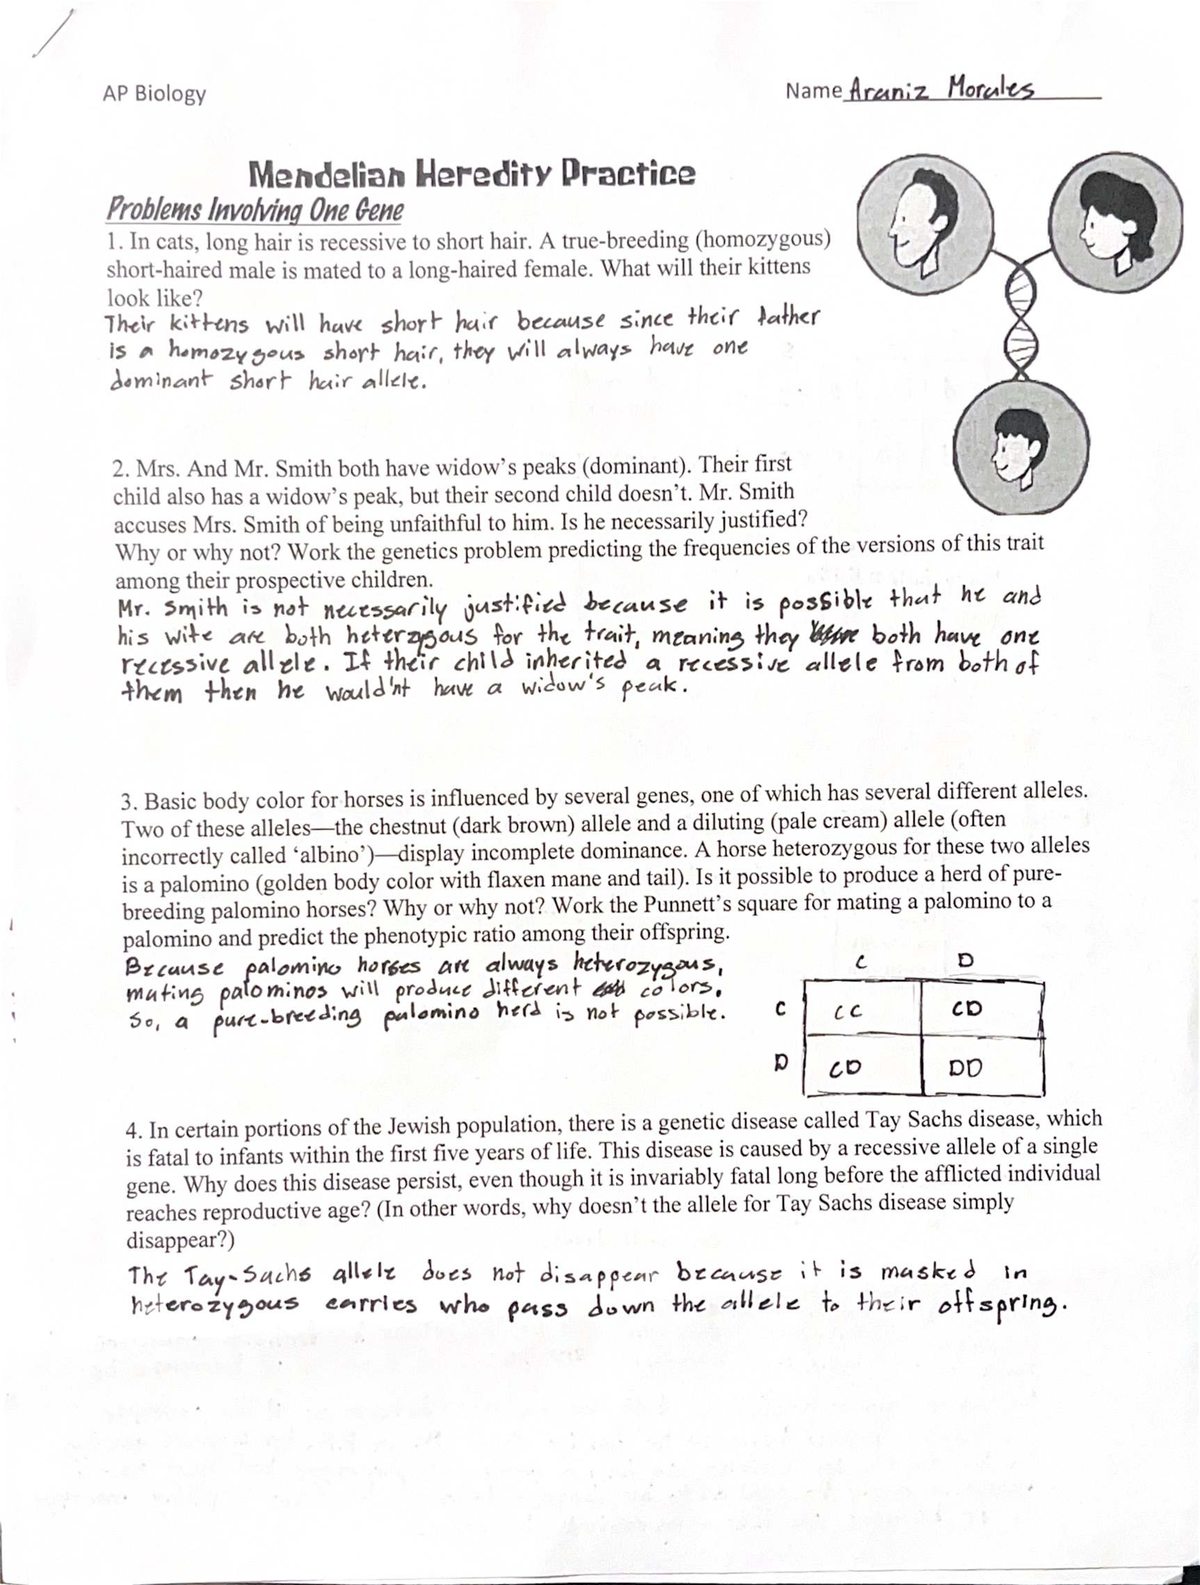 AP Biology
Name Araniz Morales
Mendelian Heredity Practice
Problems Involving One Gene
1. In cats, long hair is recessive to short hair. A true-breeding (homozygous)
short-haired male is mated to a long-haired female. What will their kittens
look like?
Their kittens will have short hair because since their father
is a homozygous short hair, they will always have one
dominant short hair allele.
2. Mrs. And Mr. Smith both have widow's peaks (dominant). Their first
child also has a widow's peak, but their second child doesn't. Mr. Smith
accuses Mrs. Smith of being unfaithful to him. Is he necessarily justified?
Why or why not? Work the genetics problem predicting the frequencies of the versions of this trait
among their prospective children.
Mr. Smith is not necessarily justified because it is possible that he and
his wife are both heterozgous for the trait, meaning they both have one
recessive allele. If their child inherited a recessive allele from both of
them then he would'nt have a widow's peak.
3. Basic body color for horses is influenced by several genes, one of which has several different alleles.
Two of these alleles—the chestnut (dark brown) allele and a diluting (pale cream) allele (often
incorrectly called 'albino')—display incomplete dominance. A horse heterozygous for these two alleles
is a palomino (golden body color with flaxen mane and tail). Is it possible to produce a herd of pure-
breeding palomino horses? Why or why not? Work the Punnett's square for mating a palomino to a
palomino and predict the phenotypic ratio among their offspring.
Because palomino horses are always heterozygous,
mating palominos will produce different colors.
So, a pure-breeding palomino herd is not possible.
C D
C CC CD
D CD DD
4. In certain portions of the Jewish population, there is a genetic disease called Tay Sachs disease, which
is fatal to infants within the first five years of life. This disease is caused by a recessive allele of a single
gene. Why does this disease persist, even though it is invariably fatal long before the afflicted individual
reaches reproductive age? (In other words, why doesn't the allele for Tay Sachs disease simply
disappear?)
The Tay-Sachs allele does not disappear because it is masked in
heterozygous carries who pass down the allele to their offspring.